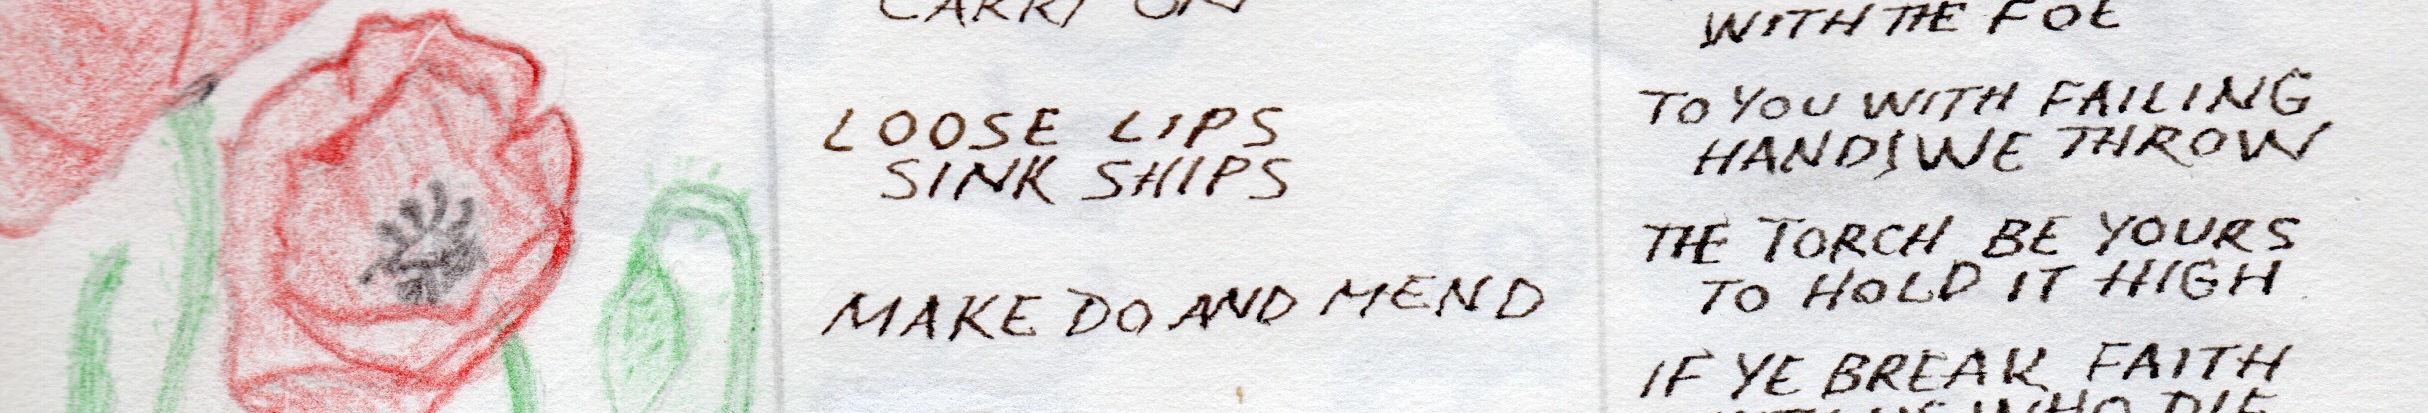 CARRY ON
LOOSE LIPS
SINK SHIPS
MAKE DO AND MEND
WITH THE FOE
TO YOU WITH FAILING
HANDS WE THROW
THE TORCH BE YOURS
TO HOLD IT HIGH
IF YE BREAK FAITH
WITH US WHO DIE